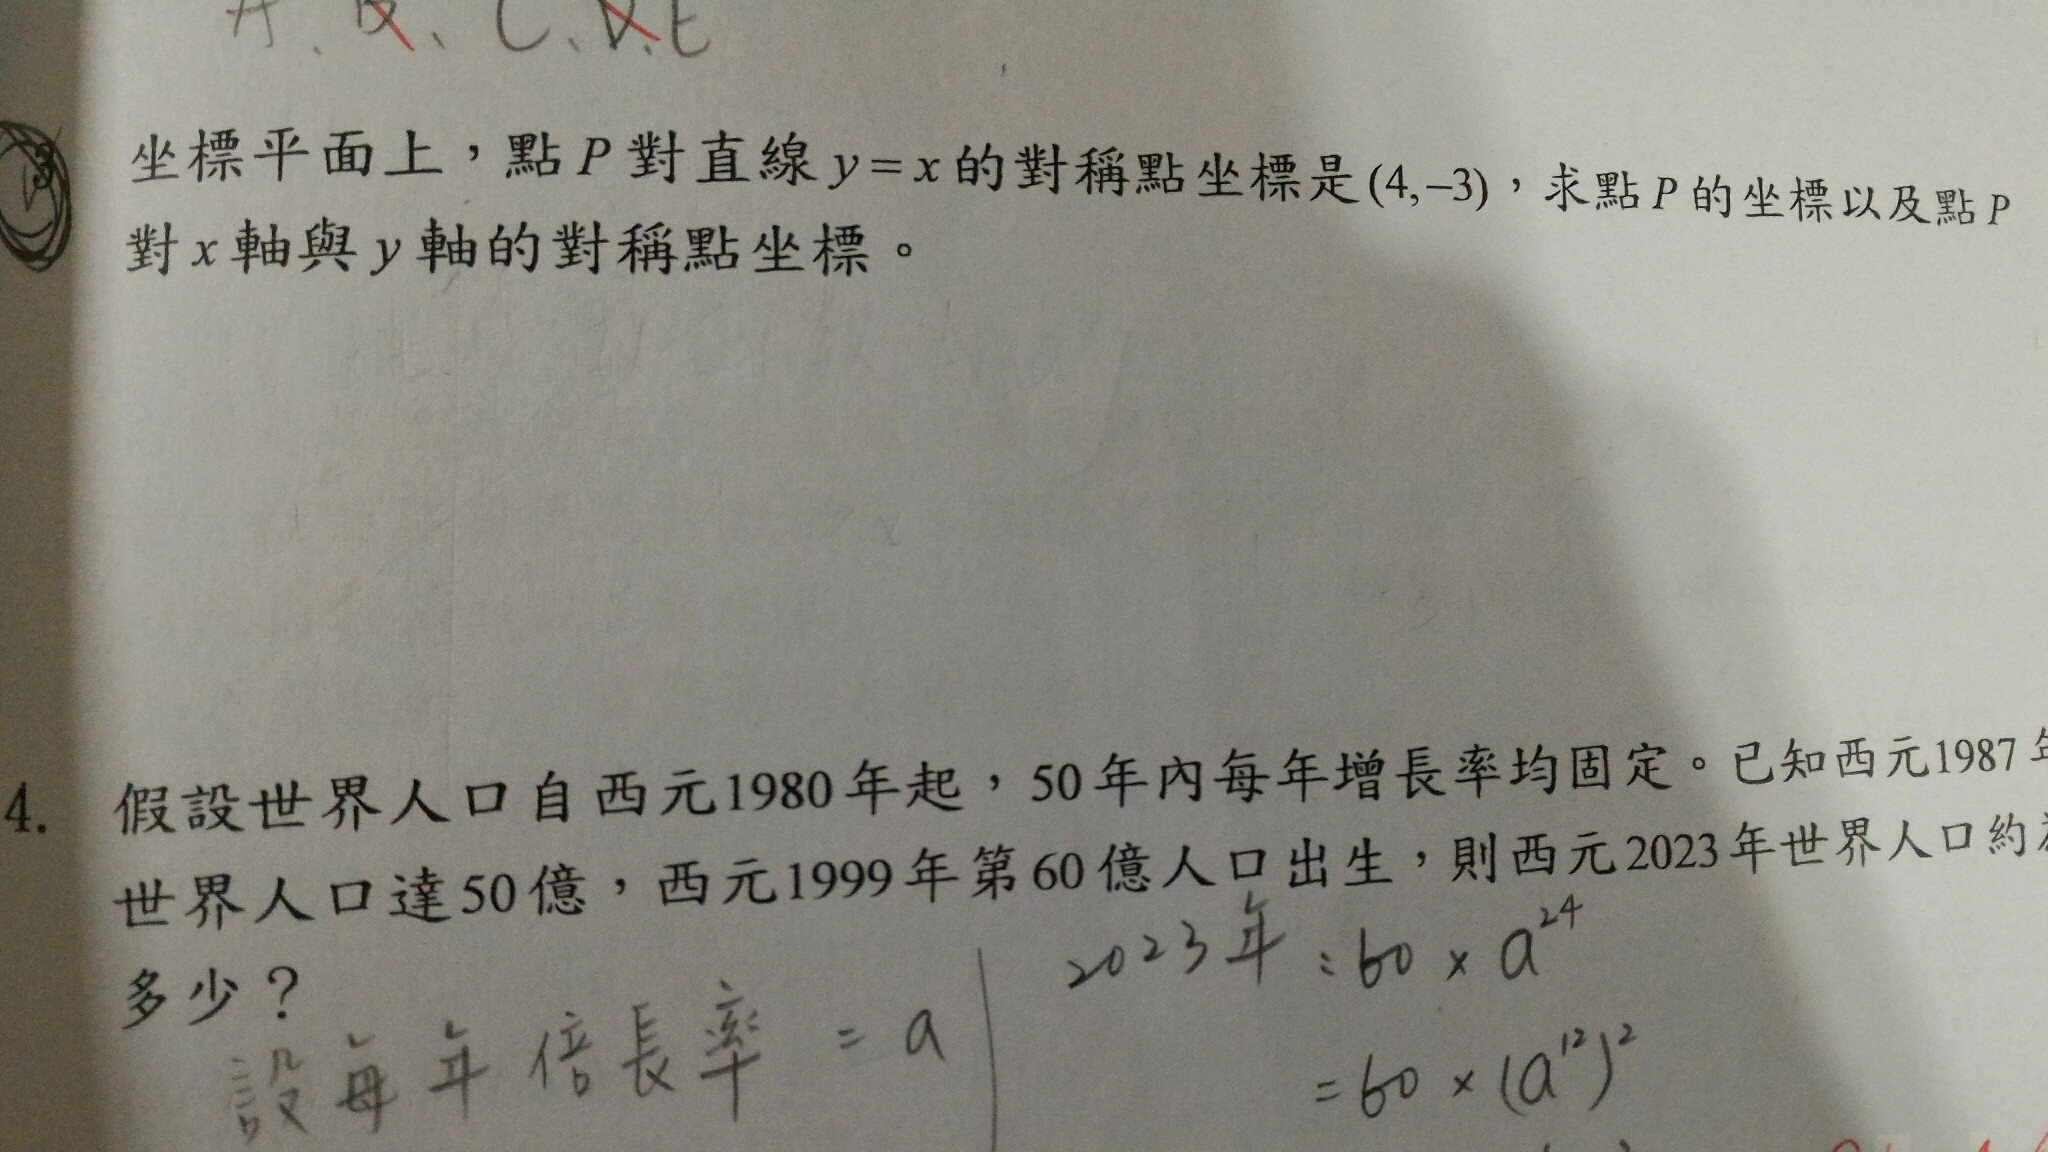 A、B、C、D、E
3 坐標平面上，點P對直線y=x的對稱點坐標是(4,−3)，求點P的坐標以及點P
對x軸與y軸的對稱點坐標。
4. 假設世界人口自西元1980年起，50年內每年增長率均固定。已知西元1987年
世界人口達50億，西元1999年第60億人口出生，則西元2023年世界人口約為
多少？
2023年：60 × a²⁴
設每年倍長率 = a
= 60 × (a¹²)²